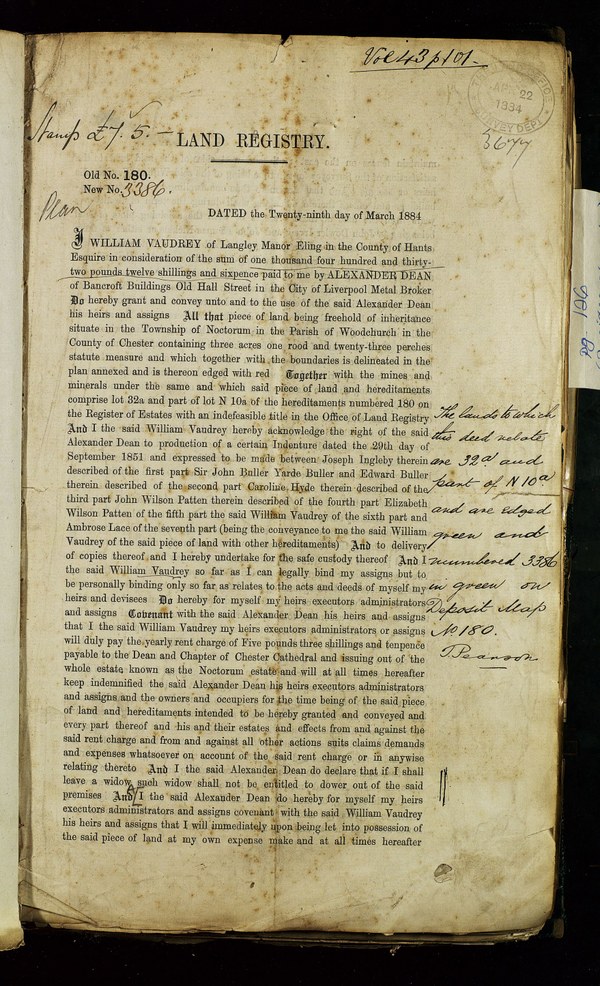 Vol 43 p 101
APR 22
1884
SURVEY DEPT
3677
Stamp £7. 5. —
LAND REGISTRY.
Old No. 180.
New No. 3386.
Plan
DATED the Twenty-ninth day of March 1884
I WILLIAM VAUDREY of Langley Manor Eling in the County of Hants
Esquire in consideration of the sum of one thousand four hundred and thirty-
two pounds twelve shillings and sixpence paid to me by ALEXANDER DEAN
of Bancroft Buildings Old Hall Street in the City of Liverpool Metal Broker
Do hereby grant and convey unto and to the use of the said Alexander Dean
his heirs and assigns All that piece of land being freehold of inheritance
situate in the Township of Noctorum in the Parish of Woodchurch in the
County of Chester containing three acres one rood and twenty-three perches
statute measure and which together with the boundaries is delineated in the
plan annexed and is thereon edged with red Together with the mines and
minerals under the same and which said piece of land and hereditaments
comprise lot 32a and part of lot N 10a of the hereditaments numbered 180 on
the Register of Estates with an indefeasible title in the Office of Land Registry
And I the said William Vaudrey hereby acknowledge the right of the said
Alexander Dean to production of a certain Indenture dated the 29th day of
September 1851 and expressed to be made between Joseph Ingleby therein
described of the first part Sir John Buller Yarde Buller and Edward Buller
therein described of the second part Caroline Hyde therein described of the
third part John Wilson Patten therein described of the fourth part Elizabeth
Wilson Patten of the fifth part the said William Vaudrey of the sixth part and
Ambrose Lace of the seventh part (being the conveyance to me the said William
Vaudrey of the said piece of land with other hereditaments) And to delivery
of copies thereof and I hereby undertake for the safe custody thereof And I
the said William Vaudrey so far as I can legally bind my assigns but to
be personally binding only so far as relates to the acts and deeds of myself my
heirs and devisees Do hereby for myself my heirs executors administrators
and assigns Covenant with the said Alexander Dean his heirs and assigns
that I the said William Vaudrey my heirs executors administrators or assigns
will duly pay the yearly rent charge of Five pounds three shillings and tenpence
payable to the Dean and Chapter of Chester Cathedral and issuing out of the
whole estate known as the Noctorum estate and will at all times hereafter
keep indemnified the said Alexander Dean his heirs executors administrators
and assigns and the owners and occupiers for the time being of the said piece
of land and hereditaments intended to be hereby granted and conveyed and
every part thereof and his and their estates and effects from and against the
said rent charge and from and against all other actions suits claims demands
and expenses whatsoever on account of the said rent charge or in anywise
relating thereto And I the said Alexander Dean do declare that if I shall
leave a widow such widow shall not be entitled to dower out of the said
premises And I the said Alexander Dean do hereby for myself my heirs
executors administrators and assigns covenant with the said William Vaudrey
his heirs and assigns that I will immediately upon being let into possession of
the said piece of land at my own expense make and at all times hereafter
The lands to which
this deed relate
are 32a and
part of N 10a
and are edged
green and
numbered 3386
in green on
Deposit Map
No 180.
T. Pearson